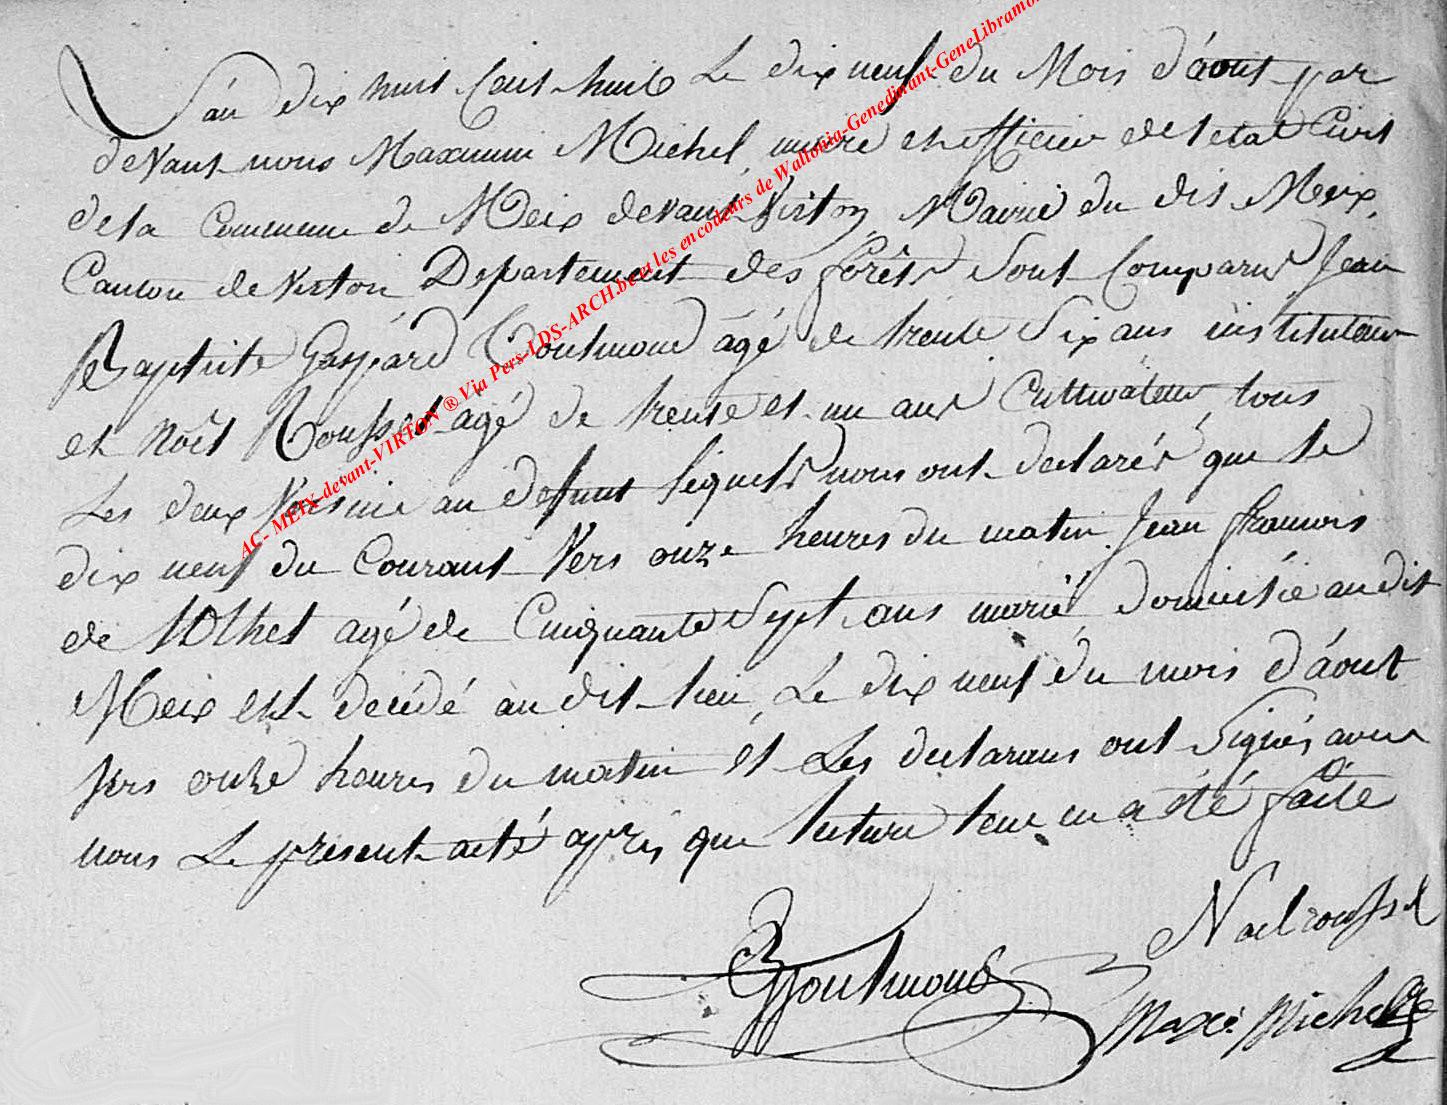 L'an dix huit Cent huit Le dix neuf du Mois d'áout par
devant nous Maximin Michel, maire et officier de l'etat Civil
de la Commune de Meix devant Virton, Mairie du dit Meix,
Canton de Virton Departement des forêts Sont Comparus Jean
Baptiste Gaspárd Goutmond âgé de trente Six ans instituteur
et Noël Roussel agé de trente et un ans Cultivateur tous
Les deux Voisins au defunt lequels nous ont declarés que le
dix neuf du Courant Vers onze heures du matin Jean françois
de agé de Cinquante Sept ans marié domicilié au dit
Meix est décédé au dit lieu, Le dix neuf du mois d'áout
Vers onze heures du matin et Les declarans ont Signés avec
nous Le présent acté aprés que lecture leur en a été faite
Noel roussel
Goutmond
Maxi. Michel
AC- MEIX-devant-VIRTON ® Via Pers-LDS-ARCH.be et les encodeurs de Wallonia-Genedinant-GeneLibramo